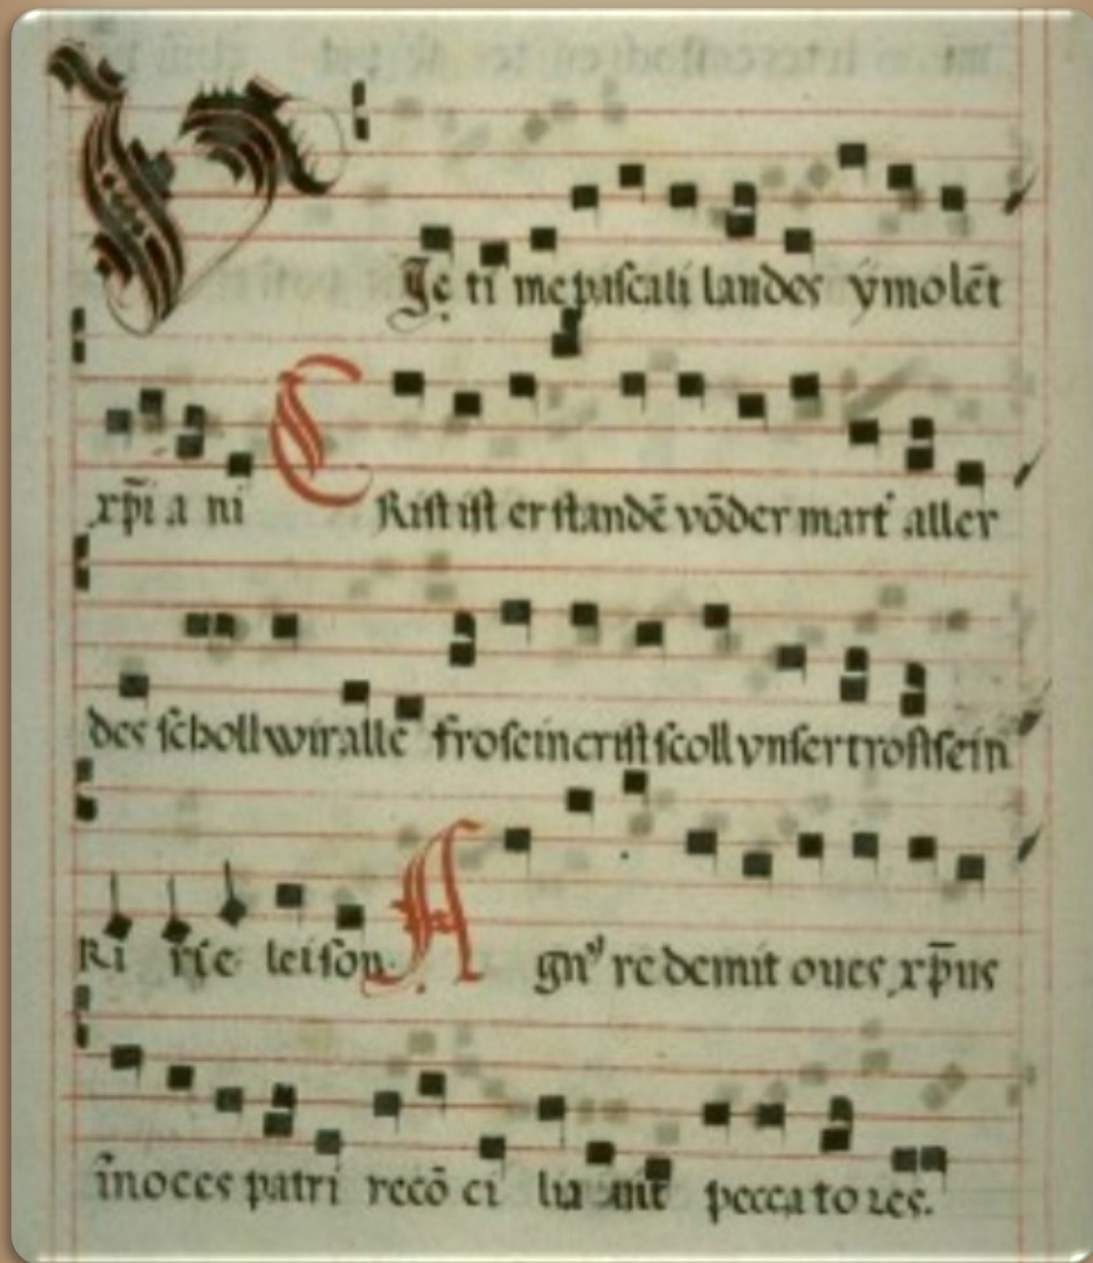 VJc ti me pascali laudes ẏmolēt
xp̄i a ni CRist ist er standē vō der mart' aller
des scholl wir alle fro sein crist scoll vnser trost sein
Ki rie leison. Agnꝰ redemit oues xp̄us
īnoces patri recō ci lia uit pecca to res.